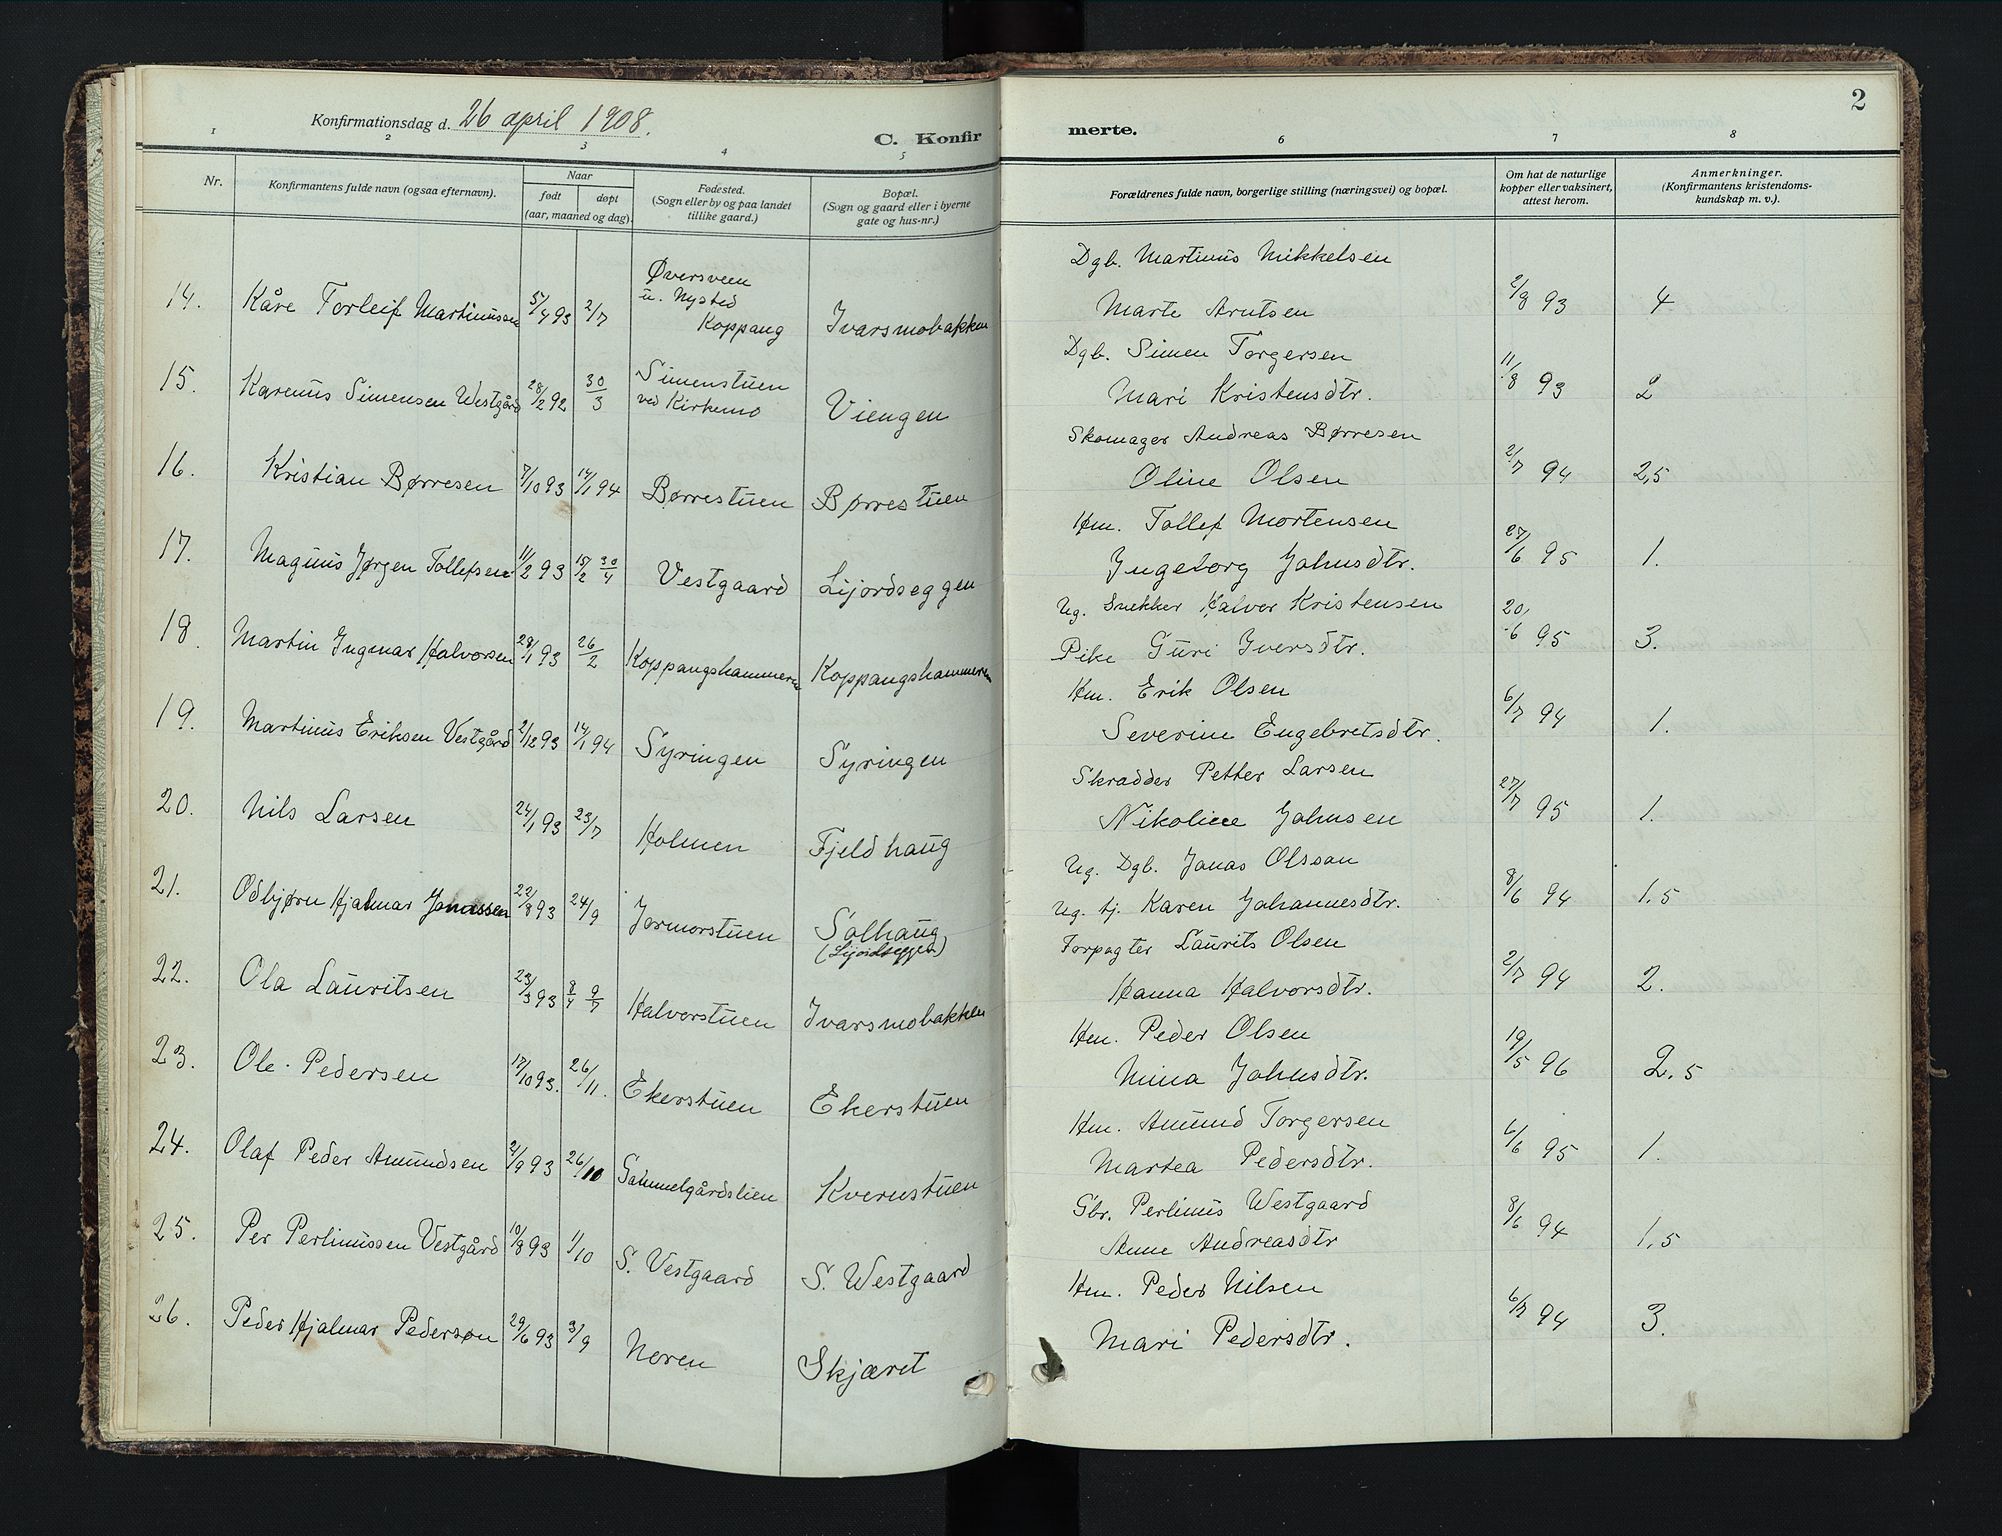 2
Konfirmationsdag d. 26 april 1908.
C. Konfir
merte.
1 2 3 4 5 6 7 8
Nr.
Konfirmantens fulde navn (ogsaa efternavn).
Naar
født døpt
(aar, maaned og dag).
Fødested.
(Sogn eller by og paa landet
tillike gaard.)
Bopæl.
(Sogn og gaard eller i byerne
gate og hus-nr.)
Forældrenes fulde navn, borgerlige stilling (næringsvei) og bopæl.
Om hat de naturlige
kopper eller vaksinert,
attest herom.
Anmerkninger.
(Konfirmantens kristendoms-
kundskap m. v.).
Øversveen
u. Nysted
14. Kåre Torleif Martinussen 5/4 93 2/7 Koppang Ivarsmobakken
Dgb. Martinus Mikkelsen
Marte Arntsen 2/8 93 4
15. Karenus Simensen Westgård 28/2 92 30/3 Simenstuen
ved Kirkemo Viengen
Dgb. Simen Torgersen
Mari Kristensdtr. 11/8 93 2
16. Kristian Børresen 7/10 93 14/1 94 Børrestuen Børrestuen
Skomager Andreas Børresen
Oline Olsen 2/7 94 2,5
17. Magnus Jørgen Tollefsen 11/2 93 15/2 30/4 Vestgaard Lijordseggen
Hm. Tollef Mortensen
Ingeborg Johnsdtr. 27/6 95 1.
18. Martin Ingmar Halvorsen 28/1 93 26/2 Koppangshammeren Koppangshammeren
Ug. Snekker Halvor Kristensen
Pike Guri Iversdtr. 20/6 95 3.
19. Martinus Eriksen Vestgård 2/12 93 14/1 94 Syringen Syringen
Hm. Erik Olsen
Severine Engebretsdtr. 6/7 94 1.
20. Nils Larsen 24/1 93 23/7 Holmen Fjeldhaug
Skradder Petter Larsen
Nikoline Johnsen 27/7 95 1.
21. Odbjørn Hjalmar Jonassen 22/8 93 24/9 Jormorstuen Solhaug
(Lijordseggen)
Ug. Dgb. Jonas Olsson
Ug. tj. Karen Johannesdtr. 8/6 94 1,5
22. Ola Lauritsen 23/3 93 8/4 9/7 Halvorstuen Ivarsmobakken
Forpagter Laurits Olsen
Hanna Halvorsdtr. 2/7 94 2.
23. Ole Pedersen 17/10 93. 26/11. Ekerstuen Ekerstuen
Hm. Peder Olsen
Mina Johnsdtr. 19/5 96 2,5
24. Olaf Peder Amundsen 2/9 93 26/10 Gammelgårdslien Kvernstuen
Hm. Amund Torgersen
Martea Pedersdtr. 6/6 95 1.
25. Per Perlinussen Vestgård 10/8 93 1/10 S. Vestgaard S. Westgaard
Gbr. Perlinus Westgaard
Anne Andreasdtr 8/6 94 1,5
26. Peder Hjalmar Pederson 29/6 93 3/9 Noren Skjæret
Hm. Peder Nilsen
Mari Pedersdtr. 6/7 94 3.